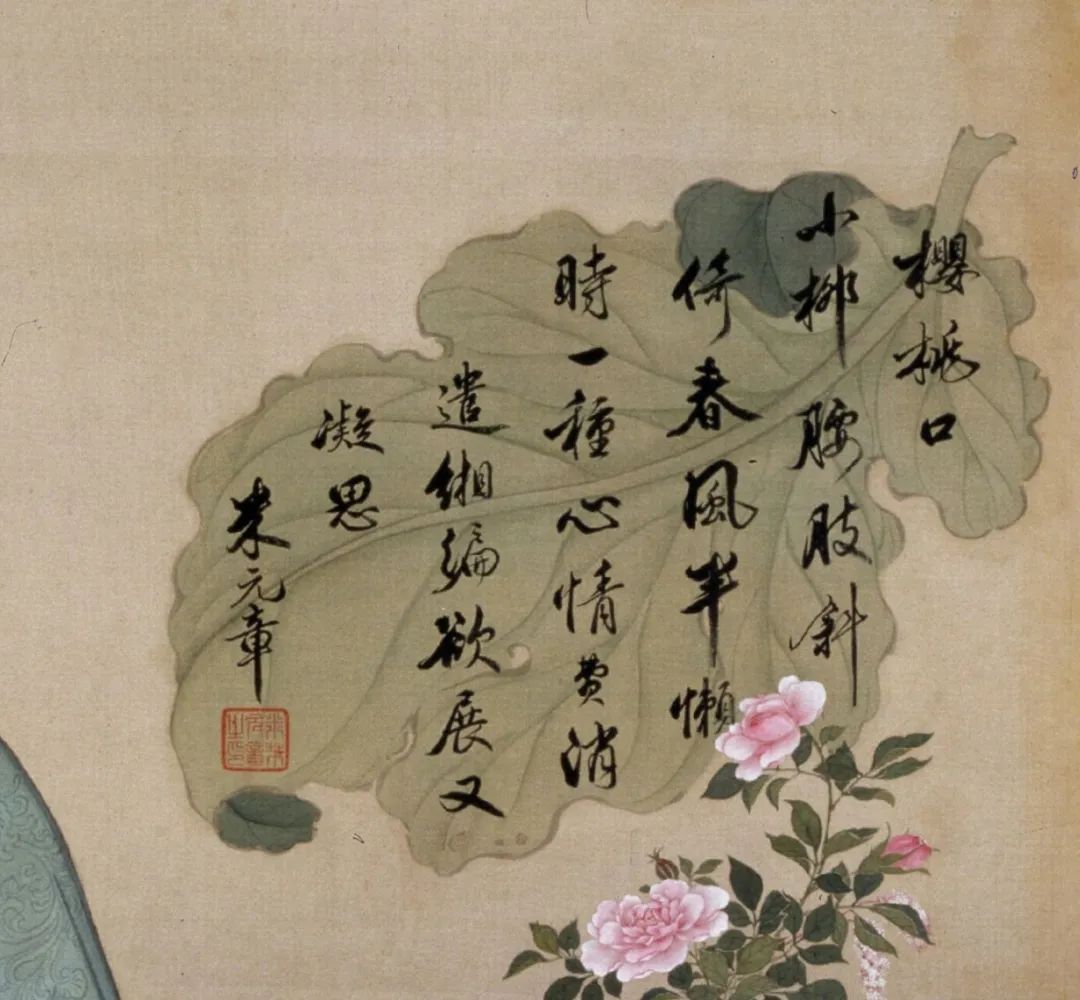 櫻桃口
小柳腰肢斜
倚春風半懶
時一種心情費消
遣緗編欲展又
凝思
米元章
米芾元章之印